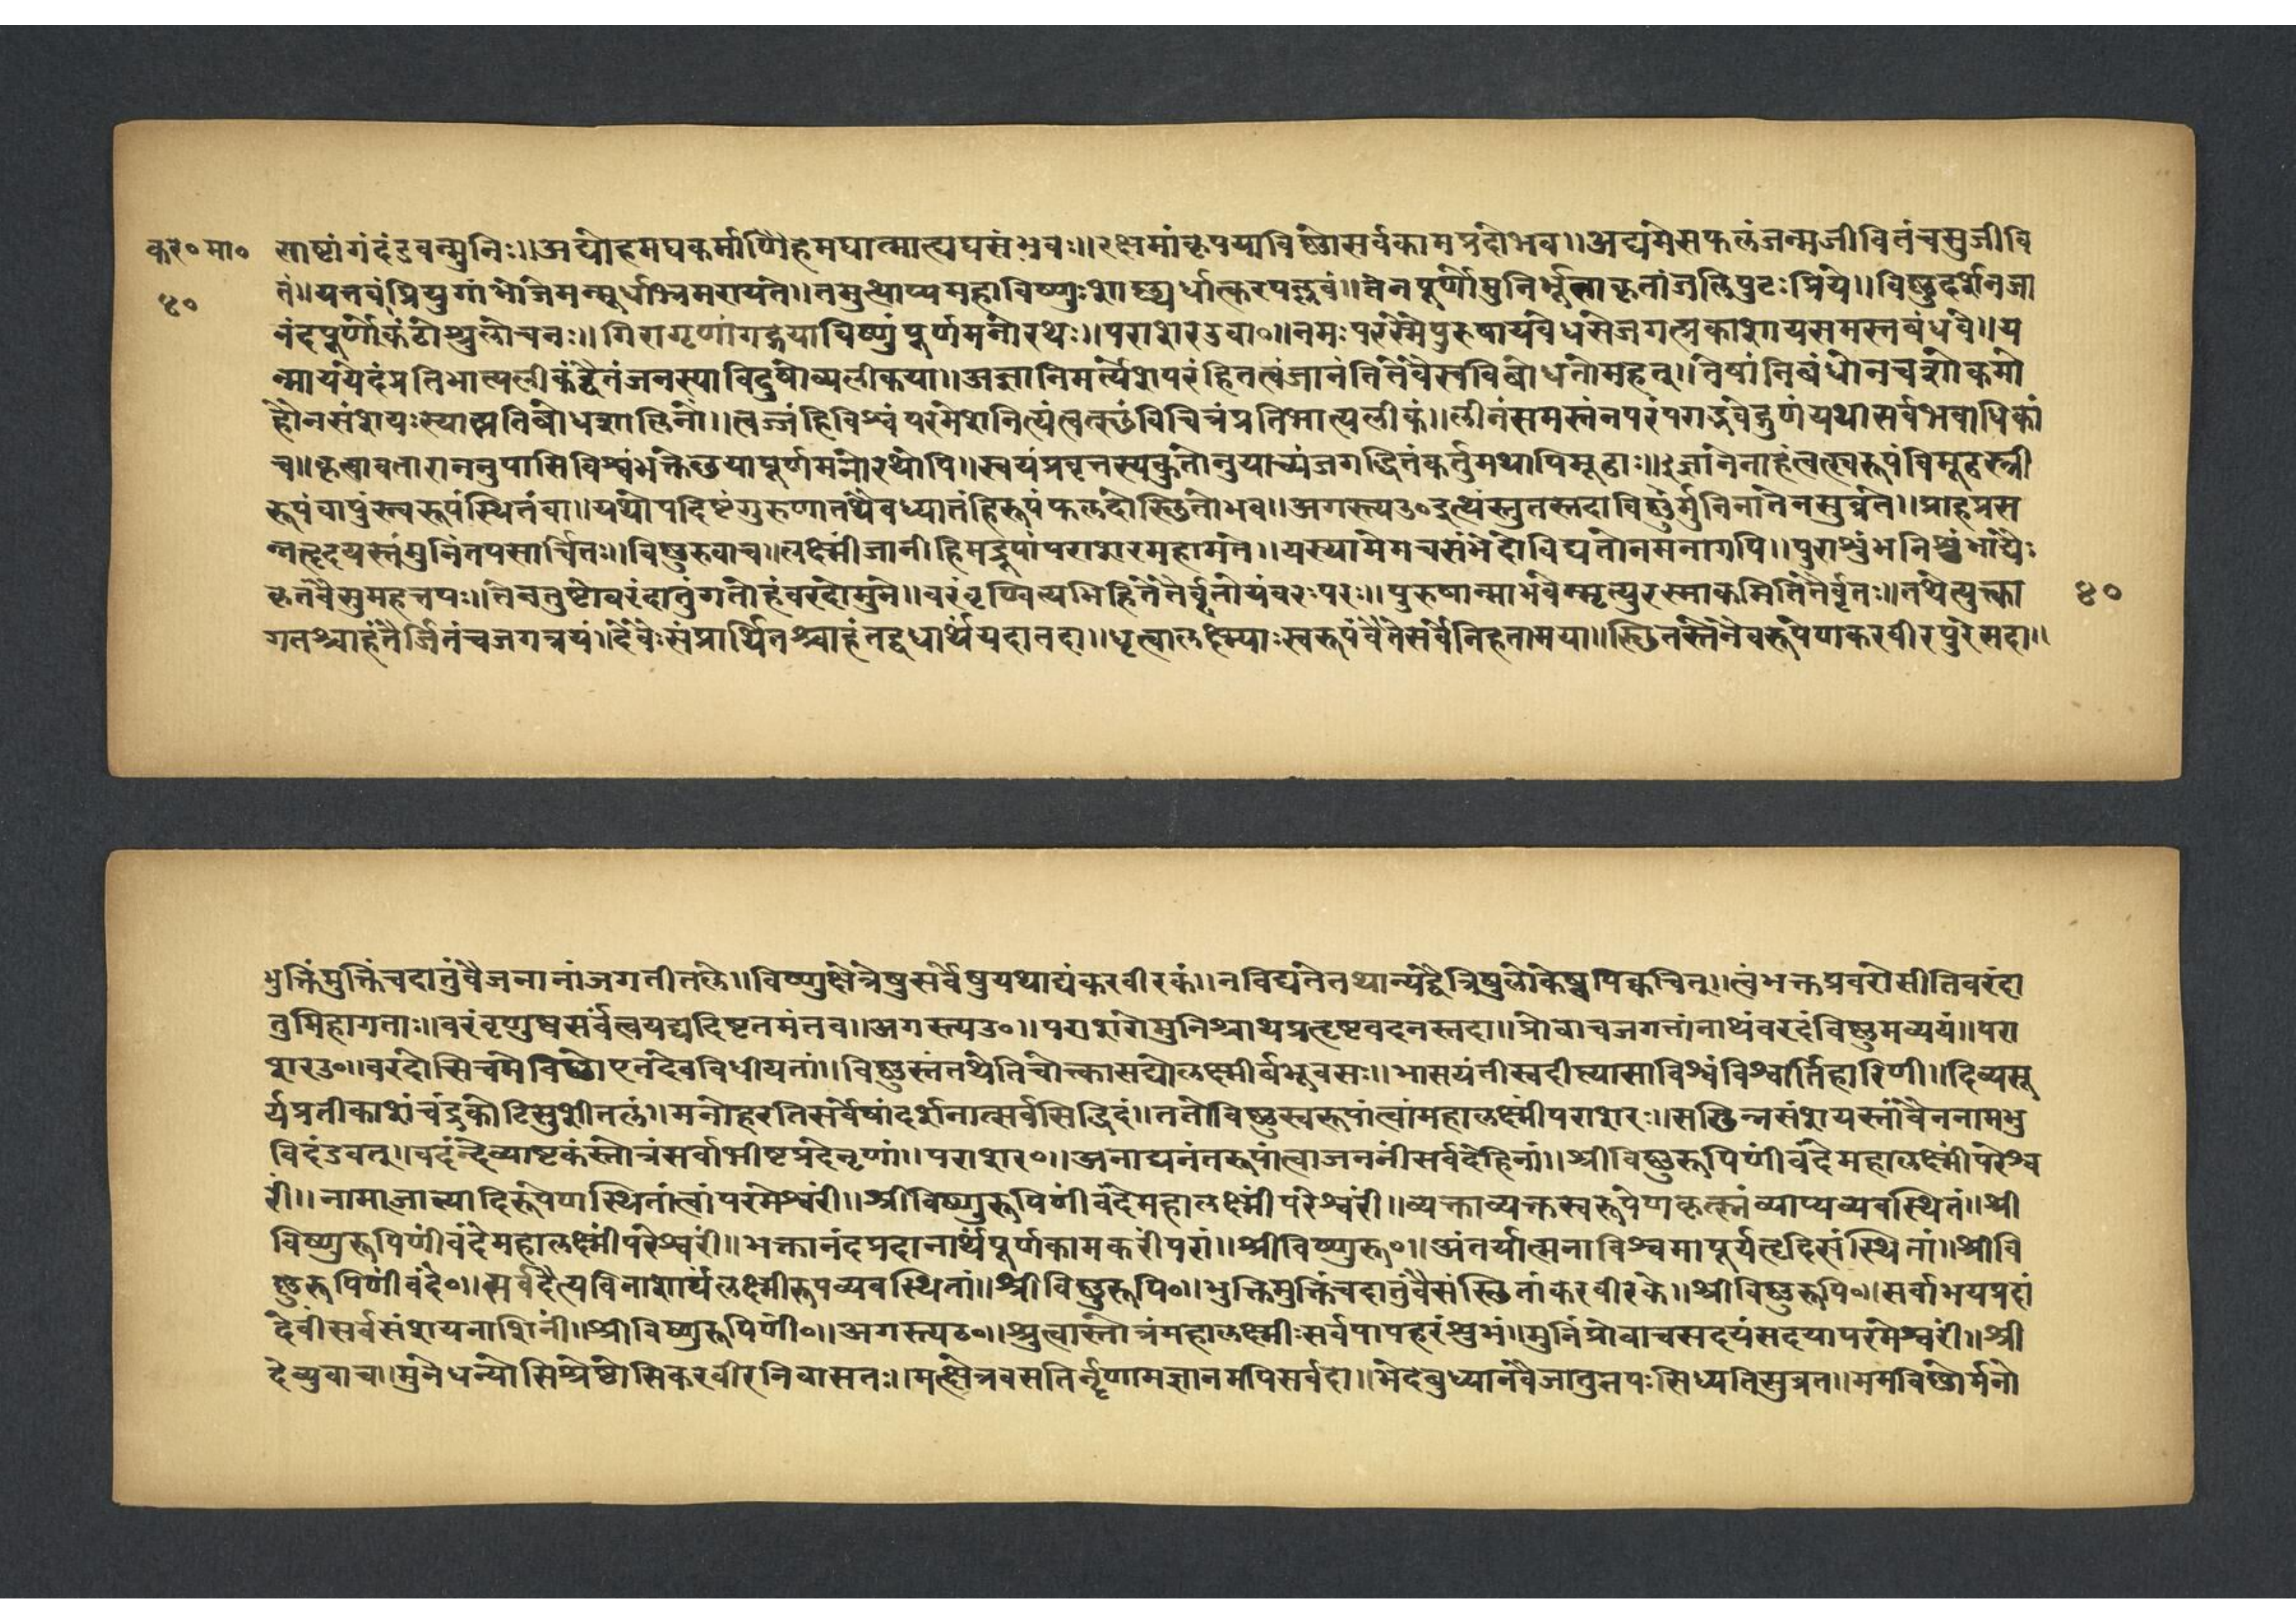 कर॰मा॰ साष्टांगंदंडवन्मुनिः॥अद्योहमघकर्माणिहेमघात्मात्यघसंभवः॥रक्षमांकृपयाविष्णोसर्वकामप्रदोभव॥अद्यमेसफलंजन्मजीवितंचसुजीवि
४०
तं॥यत्तवंघ्रियुगांभोजेमन्मूर्धाभ्रमरायते॥तमुत्थाप्यमहाविष्णुःशोर्धात्करपल्लवं॥तेनपूर्णोमुनिर्भूत्वाकृतांजलिपुटःप्रिये॥विष्णुदर्शनजा
नंदपूर्णोकंठोस्रुलोचनः॥गिरागृणाद्गद्गयाविष्णुंपूर्णमनोरथः॥पराशरउवा॰॥नमःपरस्मैपुरुषायवेधसेजगत्प्रकाशायसमस्तबंधवे॥य
न्माययेदंप्रतिभात्यलीकंद्वैतंजनस्याविदुषोव्यलीकया॥अज्ञानिमर्त्येशपरंहितत्वंजानंतितेवैस्वविबोधतोमहत्॥तेषांनिबंधोनचशोकमो
हौनसंशयःस्यात्प्रतिबोधशालिनां॥त्वज्जंहिविश्वंपरमेशनित्यंत्वत्स्थंविचित्रंप्रतिभात्यलीकं॥लीनंसमस्तंनपरंपराद्भवेद्गुणंयथासर्वभवाधिकां
च॥कृत्वावताराननुपासिविश्वंभक्तेछयापूर्णमनोरथोपि॥स्वयंप्रवृत्तस्यकुतोनुयाच्यंजगद्धितंकर्तुमथापिमूढाः॥ज्ञानेनाहंत्वत्स्वरूपंविमूढस्त्री
रूपंवापुंस्त्वरूपंस्थितंवा॥यथोपदिष्टंगुरुणातथैवध्यातंहिरूपंफलदोस्थितोभव॥अगस्त्यउ॰इत्थंस्तुतस्तदाविष्णुर्मुनिनातेनसुव्रते॥प्राहप्रस
न्नहृदयस्तंमुनिंतपसार्चितः॥विष्णुरुवाच॥लक्ष्मींजानीहिमद्रूपांपराशरमहामते॥यस्यामेमचसंभेदोविद्यतेनमनागपि॥पुराशुंभनिशुंभाद्यैः
कृतंवैसुमहत्तपः॥तेनतुष्टोवरंदातुंगतोहंवरदोमुने॥वरंवृण्वित्यभिहितेतैर्वृतोयंवरःपरः॥पुरुषान्माभवेन्मृत्युरस्माकमितितैर्वृतः॥तथेत्युक्त्वा
४०
गतश्चाहंतैर्जितंचजगत्रयं॥देवैःसंप्रार्थितश्चाहंतद्वधार्थंयदातदा॥धृत्वालक्ष्म्याःस्वरूपंवैतेसर्वेनिहतामया॥स्थितस्तेनैवरूपेणकरवीरपुरेसदा॥
भुक्तिंमुक्तिंचदातुंवैजनानांजगतीतले॥विष्णुक्षेत्रेषुसर्वेषुयथाद्यंकरवीरकं॥नविद्यतेतथान्यद्वैत्रिषुलोकेष्वपिक्वचित्॥त्वंभक्तप्रवरोसीतिवरंदा
तुमिहागताः॥वरंवृणुष्वसर्वंत्वयद्यदिष्टतमंतव॥अगस्त्यउ॰॥पराशरोमुनिश्चाथप्रहृष्टवदनस्तदा॥प्रोवाचजगतांनाथंवरदंविष्णुमव्ययं॥परा
शरउ॰॥वरदोसिचमेविष्णोएनंदेवविधीयतां॥विष्णुस्तंतथेतिचोक्त्वासद्योलक्ष्मीर्बभूवसः॥भासयंतीस्वदीप्त्यासाविश्वंविश्वार्तिहारिणी॥दिव्यसू
र्यप्रतीकाशंचंद्रकोटिसुशीतलं॥मनोहरतिसर्वेषांदर्शनात्सर्वसिद्धिदं॥ततोविष्णुस्वरूपांत्वांमहालक्ष्मींपराशरः॥सछिन्नसंशयस्तांवैननामभु
विदंडवत्॥वदंन्देव्याष्टकंस्तोत्रंसर्वाभीष्टप्रदंनृणां॥पराशर॰॥अनाद्यनंतरूपांत्वाजननींसर्वदेहिनां॥श्रीविष्णुरूपिणींवंदेमहालक्ष्मींपरेश्व
रीं॥नामाजात्यादिरूपेणस्थितांत्वांपरमेश्वरीं॥श्रीविष्णुरूपिणींवंदेमहालक्ष्मींपरेश्वरीं॥व्यक्ताव्यक्तस्वरूपेणकृत्स्नंव्याप्यव्यवस्थितं॥श्री
विष्णुरूपिणींवंदेमहालक्ष्मींपरेश्वरीं॥भक्तानंदप्रदानार्थंपूर्णकामकरींपरां॥श्रीविष्णुरू॰॥अंतर्यात्मनाविश्वमापूर्यहृदिसंस्थितां॥श्रीवि
ष्णुरूपिणींवंदे॰॥सर्वदैत्यविनाशार्थंलक्ष्मीरूपव्यवस्थितां॥श्रीविष्णुरूपि॰॥भुक्तिंमुक्तिंचदातुंवैसंस्थितांकरवीरके॥श्रीविष्णुरूपि॰॥सर्वाभयप्रदां
देवींसर्वसंशयनाशिनीं॥श्रीविष्णुरूपिणीं॰॥अगस्त्यउ॰॥श्रुत्वास्तोत्रंमहालक्ष्मीःसर्वपापहरंशुभं॥मुनिंप्रोवाचसदयंसदयापरमेश्वरी॥श्री
देव्युवाच॥मुनेधन्योसिश्रेष्टोसिकरवीरनिवासतः॥मत्क्षेत्रवसतिर्नॄणामज्ञानमपिसर्वदा॥भेदबुध्यानवैजातुतपःसिध्यतिसुव्रत॥ममविष्णोर्मनो